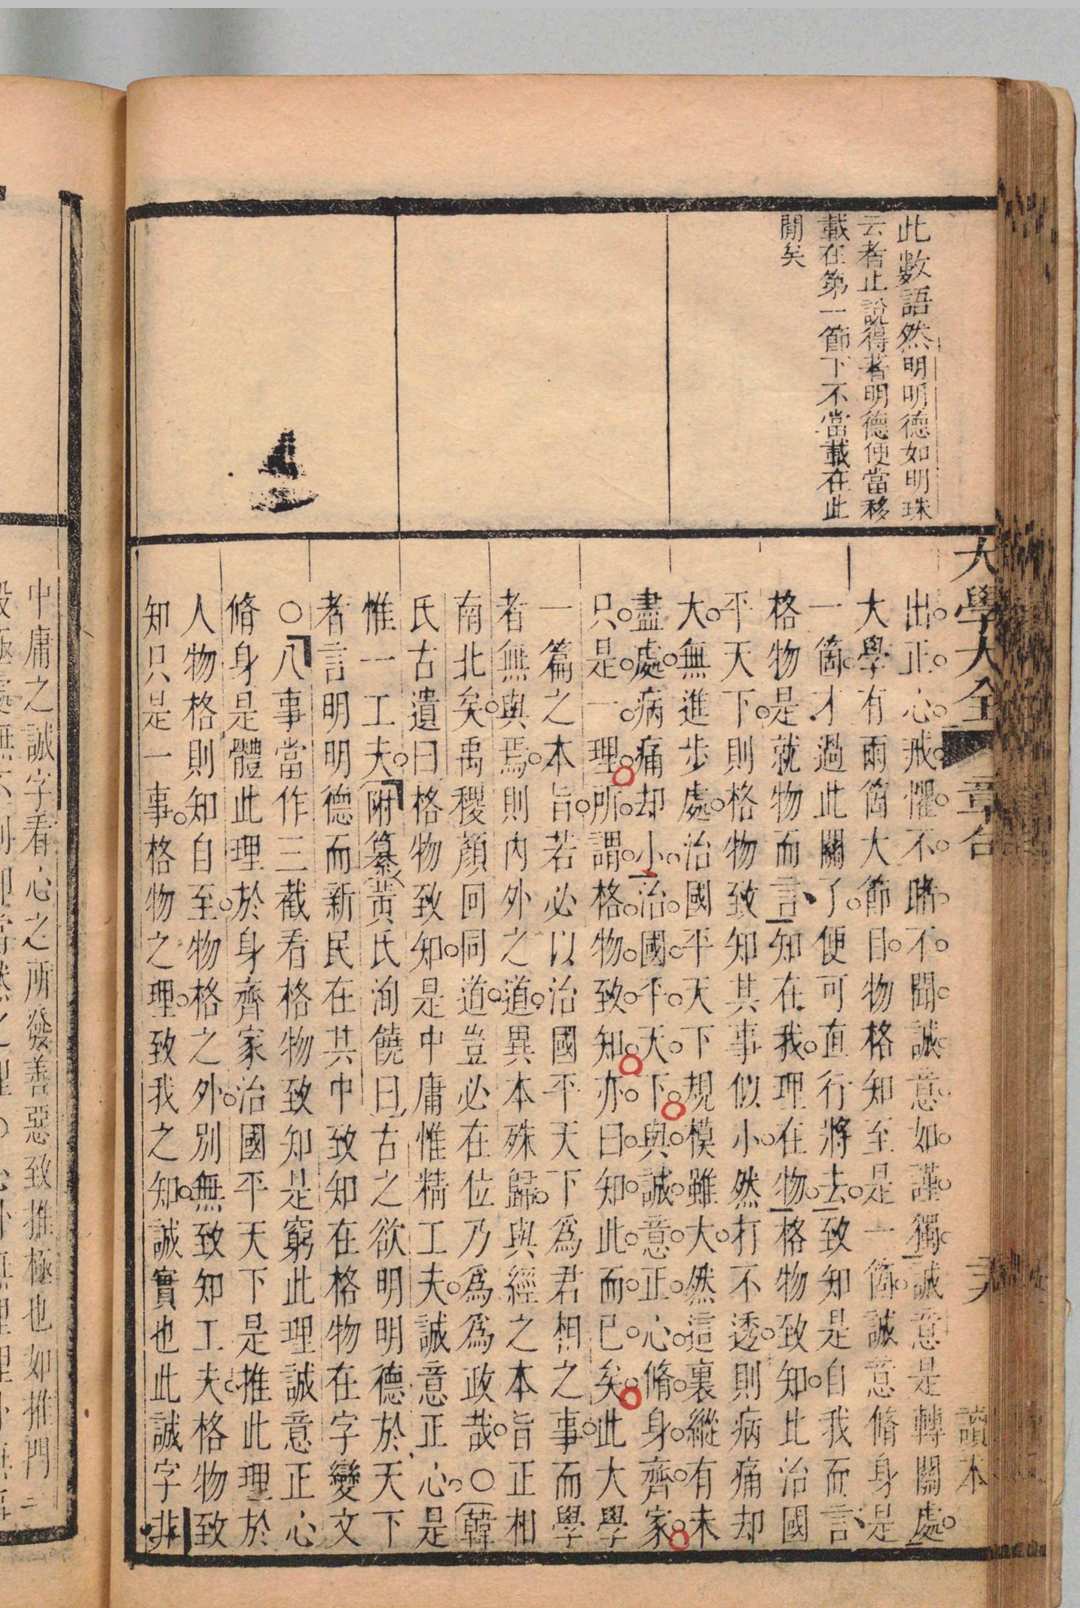 此數語然明明德如明珠
云者止說得著明德便當移
載在第一節下不當載在此
開矣
大學大全
章句
讀本
出正心戒懼不睹不聞誠意如謹獨誠意是轉關處
大學有兩箇大節目物格知至是一箇誠意脩身是
一箇才過此關了便可直行將去致知是自我而言
格物是就物而言知在我理在物格物致知此治國
平天下則格物致知其事似小然打不透則病痛却
大無進步處治國平天下規模雖大然這裏縱有未
盡處病痛却小治國平天下與誠意正心脩身齊家
只是一理所謂格物致知亦曰知此而已矣此大學
一篇之本旨若必以治國平天下爲君相之事而學
者無與焉則内外之道異本殊歸與經之本旨正相
南北矣禹稷顔回同道豈必在位乃爲爲政哉○韓
氏古遺曰格物致知是中庸惟精工夫誠意正心是
惟一工夫附纂黃氏洵饒曰古之欲明明德於天下
者言明明德而新民在其中致知在格物在字變文
○八事當作三截看格物致知是窮此理誠意正心
脩身是體此理於身齊家治國平天下是推此理於
人物格則知自至物格之外別無致知工夫格物致
知只是一事格物之理致我之知誠實也此誠字非
中庸之誠字看心之所發善惡致推極也如推門